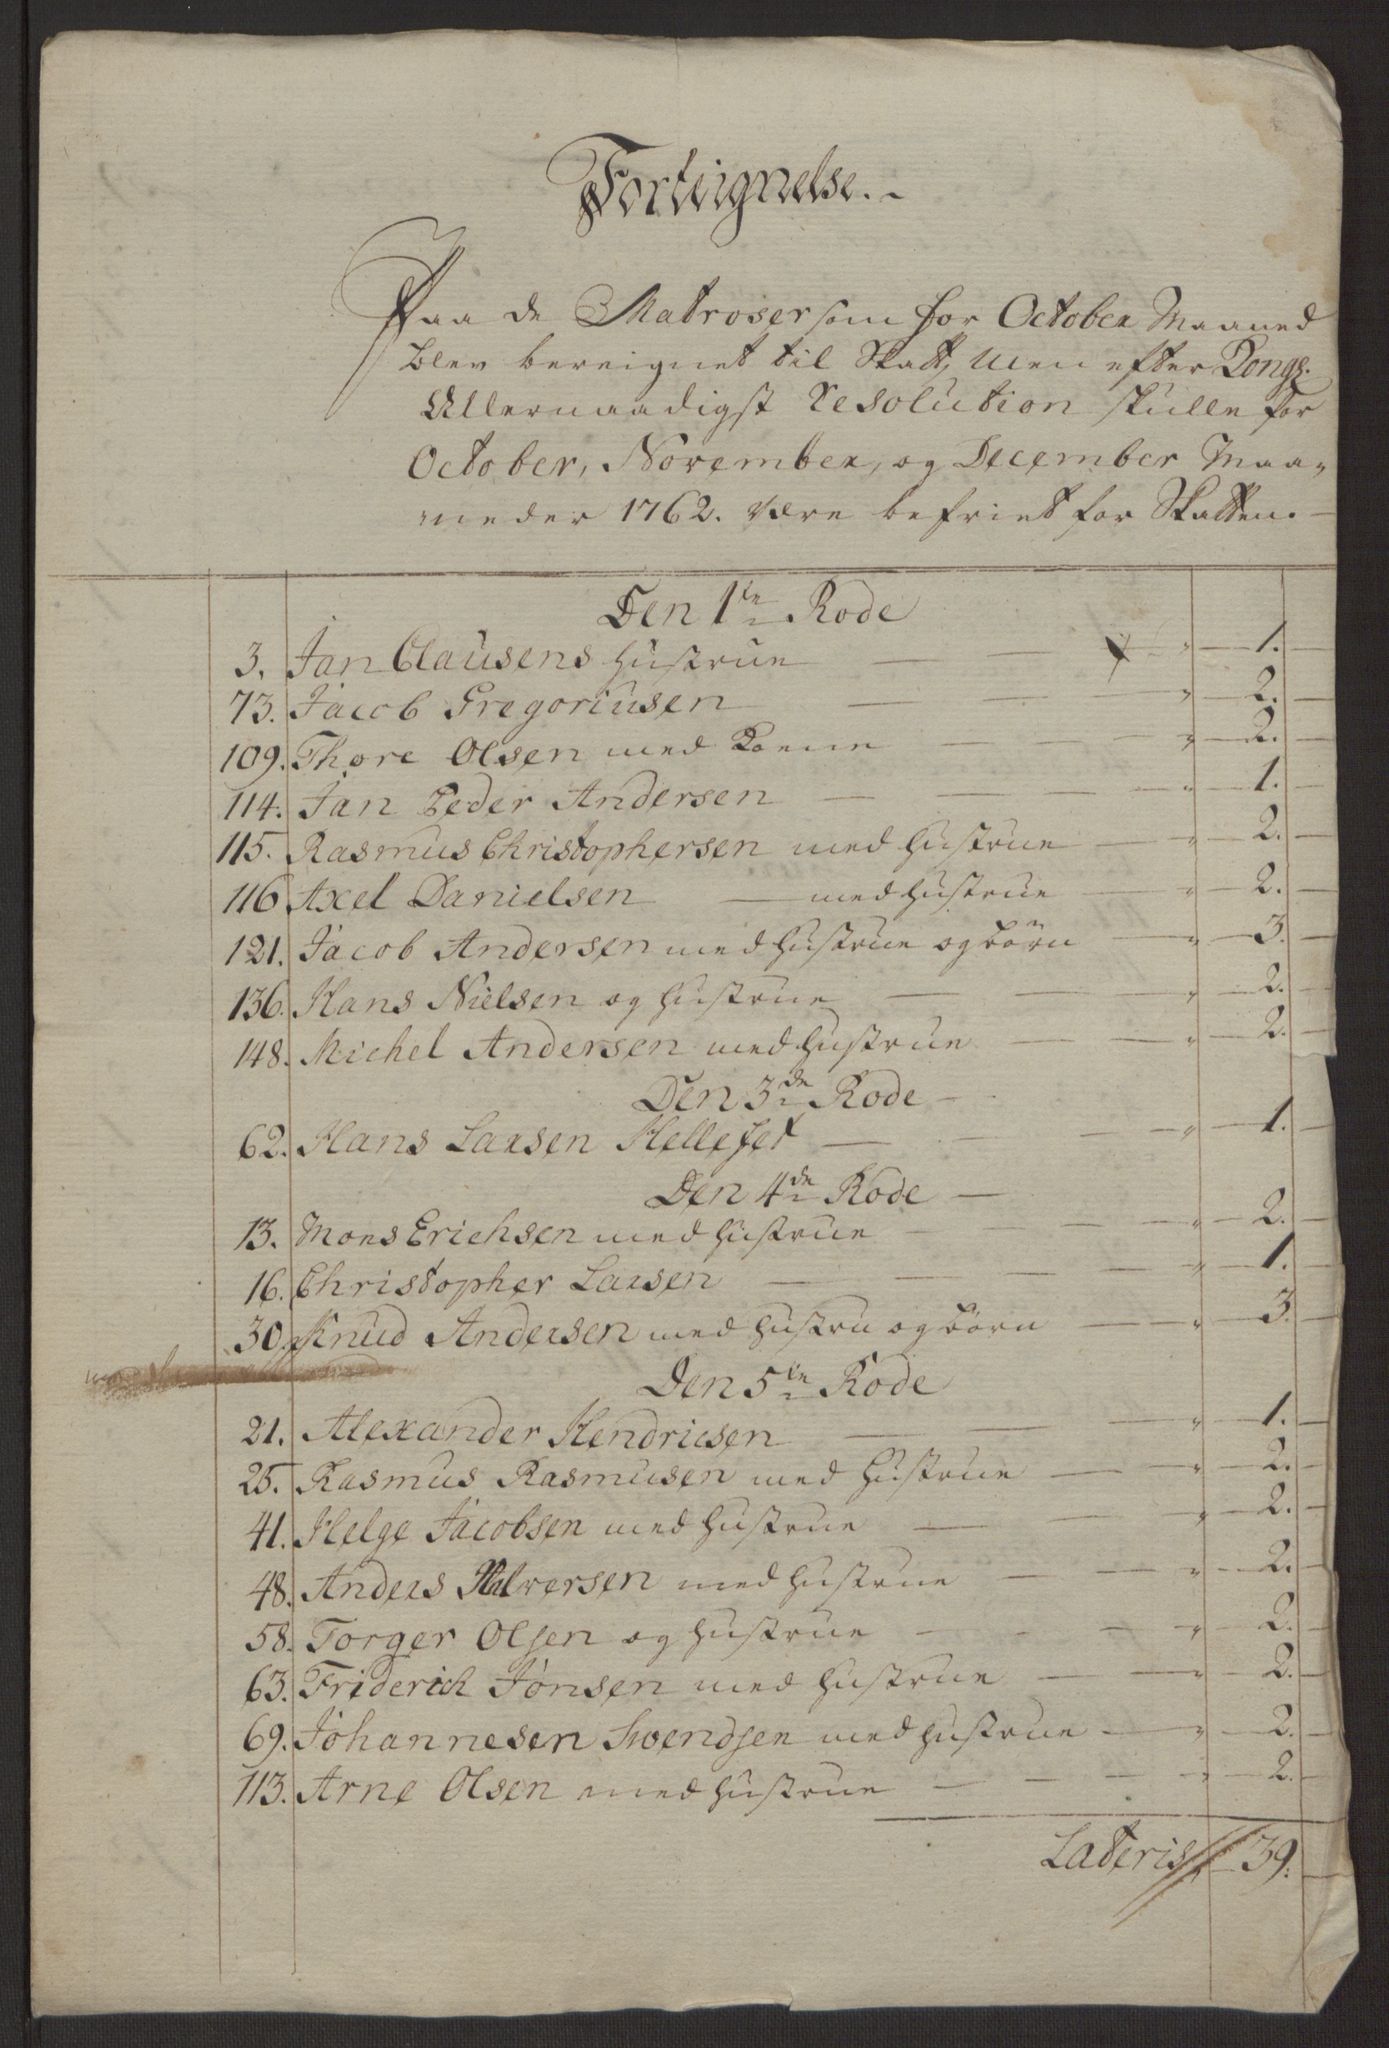 Forteignelse.
Paa de Matroser som for October Maaned
blev bereignet til Skatt, Men efter Kongl:
Allernaadigst Resolution skulle for
October, November, og December Maa-
neder 1762. være befriet for Skatten.
Den 1te Rode
3. Jan Clausens hustrue — " — 1.
73. Jacob Gregoriusen — " — 2.
109. Thore Olsen med Kone — " — 2.
114. Jan Peder Andersen — " — 1.
115. Rasmus Christophersen med hustrue — " — 2.
116 Axel Danielsen — med hustrue — " — 2.
121. Jacob Andersen med hustrue og börn — " — 3.
136. Hans Nielsen og hustrue — " — 2.
148. Michel Andersen med hustrue — " — 2.
Den 3de Rode
62. Hans Larsen — " — 1.
Den 4de Rode
13. Mons Erichsen med hustrue — " — 2.
16. Christopher Larsen — " — 1.
30. Knud Andersen med hustru og börn — " — 3.
Den 5te Rode
21. Alexander Hendricsen — " — 1.
25. Rasmus Rasmusen med hustrue — " — 2.
41. Helge Jacobsen med hustrue — " — 2.
48. Anders Halversen med hustrue — " — 2.
58. Torger Olsen og hustrue — " — 2.
63. Friderich Jonsen med hustrue — " — 2.
69. Johannesen Svendsen med hustrue — " — 2.
113. Arne Olsen med hustrue — " — 2.
Lateris 39.